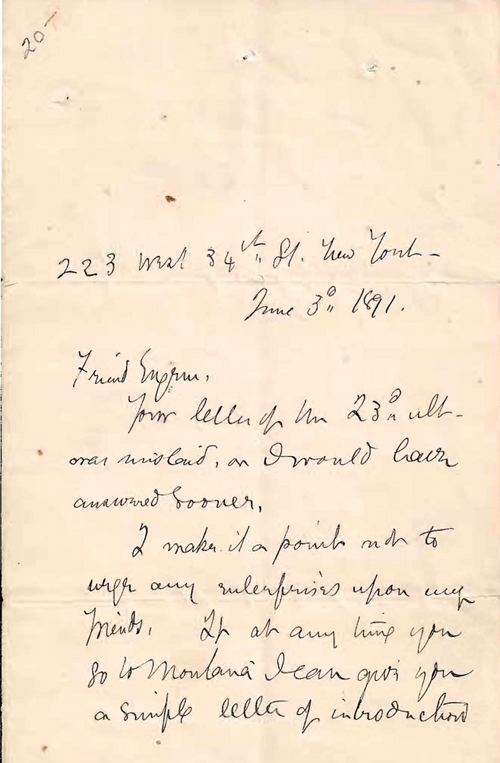 20-
223 West 34th St. New York -
June 3d 1891.
Friend Eugene,
Your letter of the 23d ult-
was mislaid, or I would have
answered sooner.
I make it a point not to
urge any enterprises upon my
friends. If at any time you
go to Montana I can give you
a simple letter of introduction